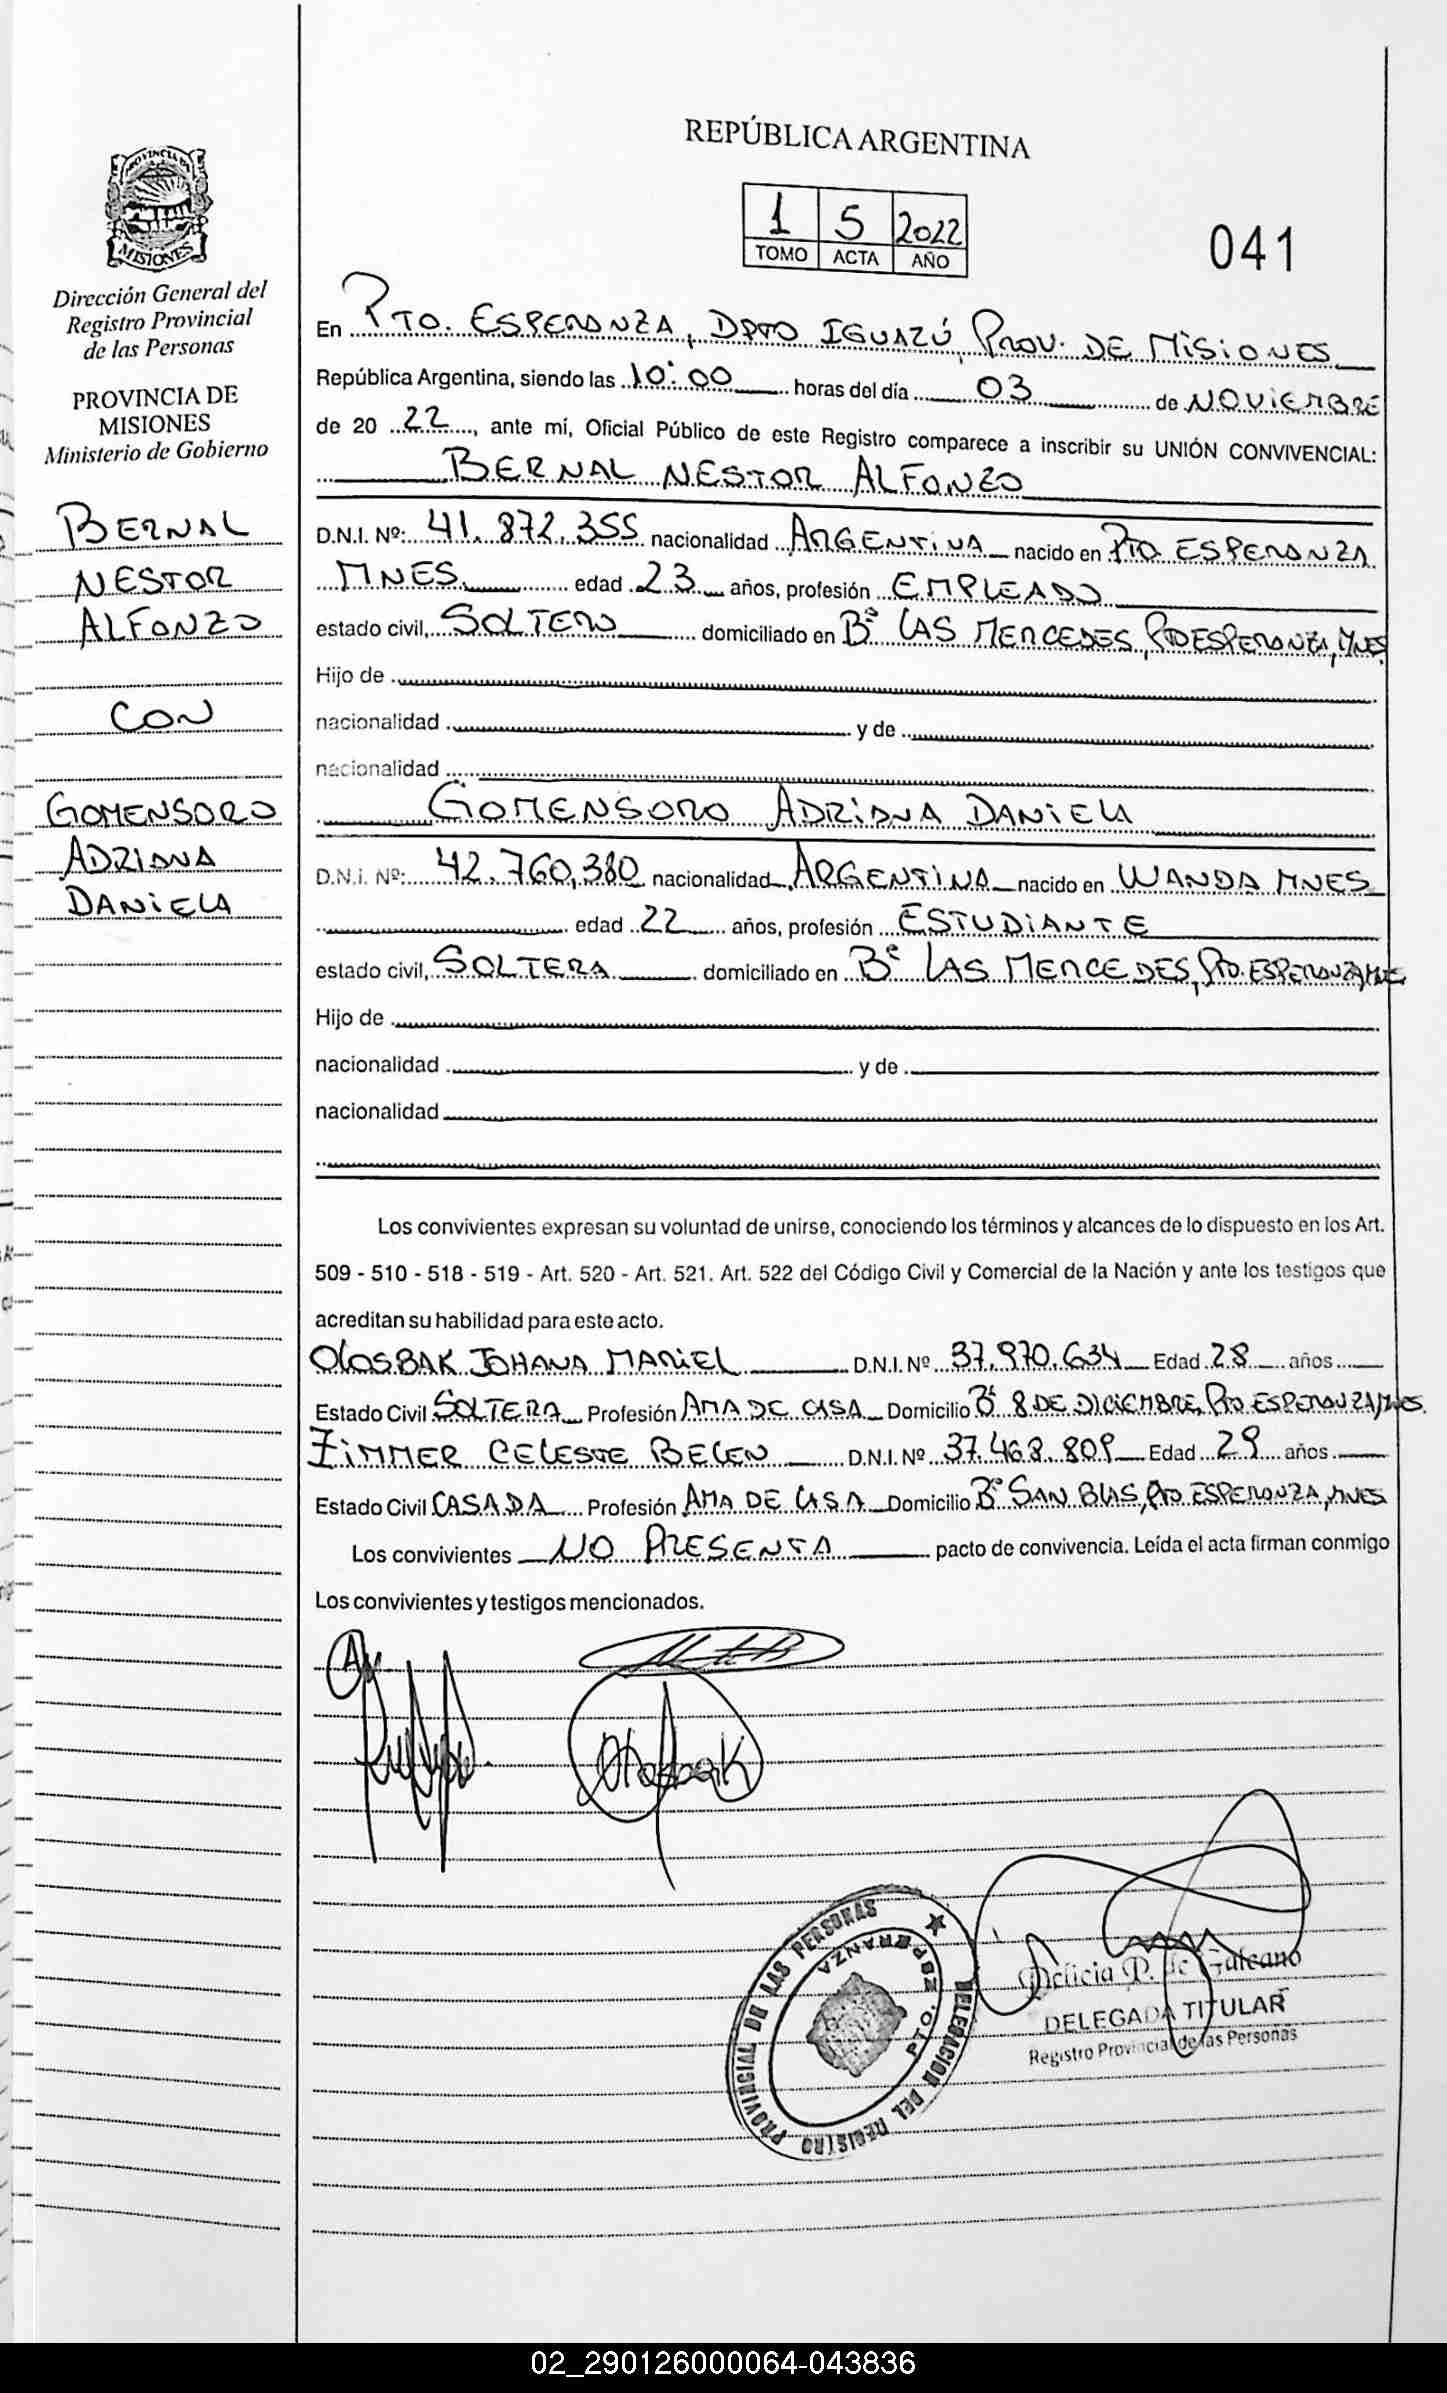 PROVINCIA DE
MISIONES
Dirección General del
Registro Provincial
de las Personas
PROVINCIA DE
MISIONES
Ministerio de Gobierno
BERNAL
NESTOR
ALFONZO
CON
GOMENSORO
ADRIANA
DANIELA
REPÚBLICA ARGENTINA
1 5 2022
TOMO ACTA AÑO
041
En PTO. ESPERANZA, DPTO IGUAZÚ, PROV. DE MISIONES
República Argentina, siendo las 10:00 horas del día 03 de NOVIEMBRE
de 20 22, ante mí, Oficial Público de este Registro comparece a inscribir su UNIÓN CONVIVENCIAL:
BERNAL NESTOR ALFONZO
D.N.I. Nº: 41.872.355 nacionalidad ARGENTINA nacido en PTO. ESPERANZA
MNES. edad 23 años, profesión EMPLEADO
estado civil, SOLTERO domiciliado en Bº LAS MERCEDES, PTO ESPERANZA, MNES
Hijo de
nacionalidad y de
nacionalidad
GOMENSORO ADRIANA DANIELA
D.N.I. Nº: 42.760.380 nacionalidad ARGENTINA nacido en WANDA MNES
edad 22 años, profesión ESTUDIANTE
estado civil, SOLTERA domiciliado en Bº LAS MERCEDES, PTO. ESPERANZA, MNES
Hijo de
nacionalidad y de
nacionalidad
Los convivientes expresan su voluntad de unirse, conociendo los términos y alcances de lo dispuesto en los Art.
509 - 510 - 518 - 519 - Art. 520 - Art. 521. Art. 522 del Código Civil y Comercial de la Nación y ante los testigos que
acreditan su habilidad para este acto.
OLOSBAK JOHANA MARIEL D.N.I. Nº 37.970.634 Edad 28 años
Estado Civil SOLTERA Profesión AMA DE CASA Domicilio Bº 8 DE DICIEMBRE, PTO ESPERANZA, MNES.
ZIMMER CELESTE BELEN D.N.I. Nº 37.468.809 Edad 29 años
Estado Civil CASADA Profesión AMA DE CASA Domicilio Bº SAN BLAS, PTO ESPERANZA, MNES
Los convivientes NO PRESENTA pacto de convivencia. Leída el acta firman conmigo
Los convivientes y testigos mencionados.
Olosbak
DELEGACION DEL REGISTRO PROVINCIAL DE LAS PERSONAS
PTO. ESPERANZA
Delicia P. de Galeano
DELEGADA TITULAR
Registro Provincial de las Personas
02_290126000064-043836